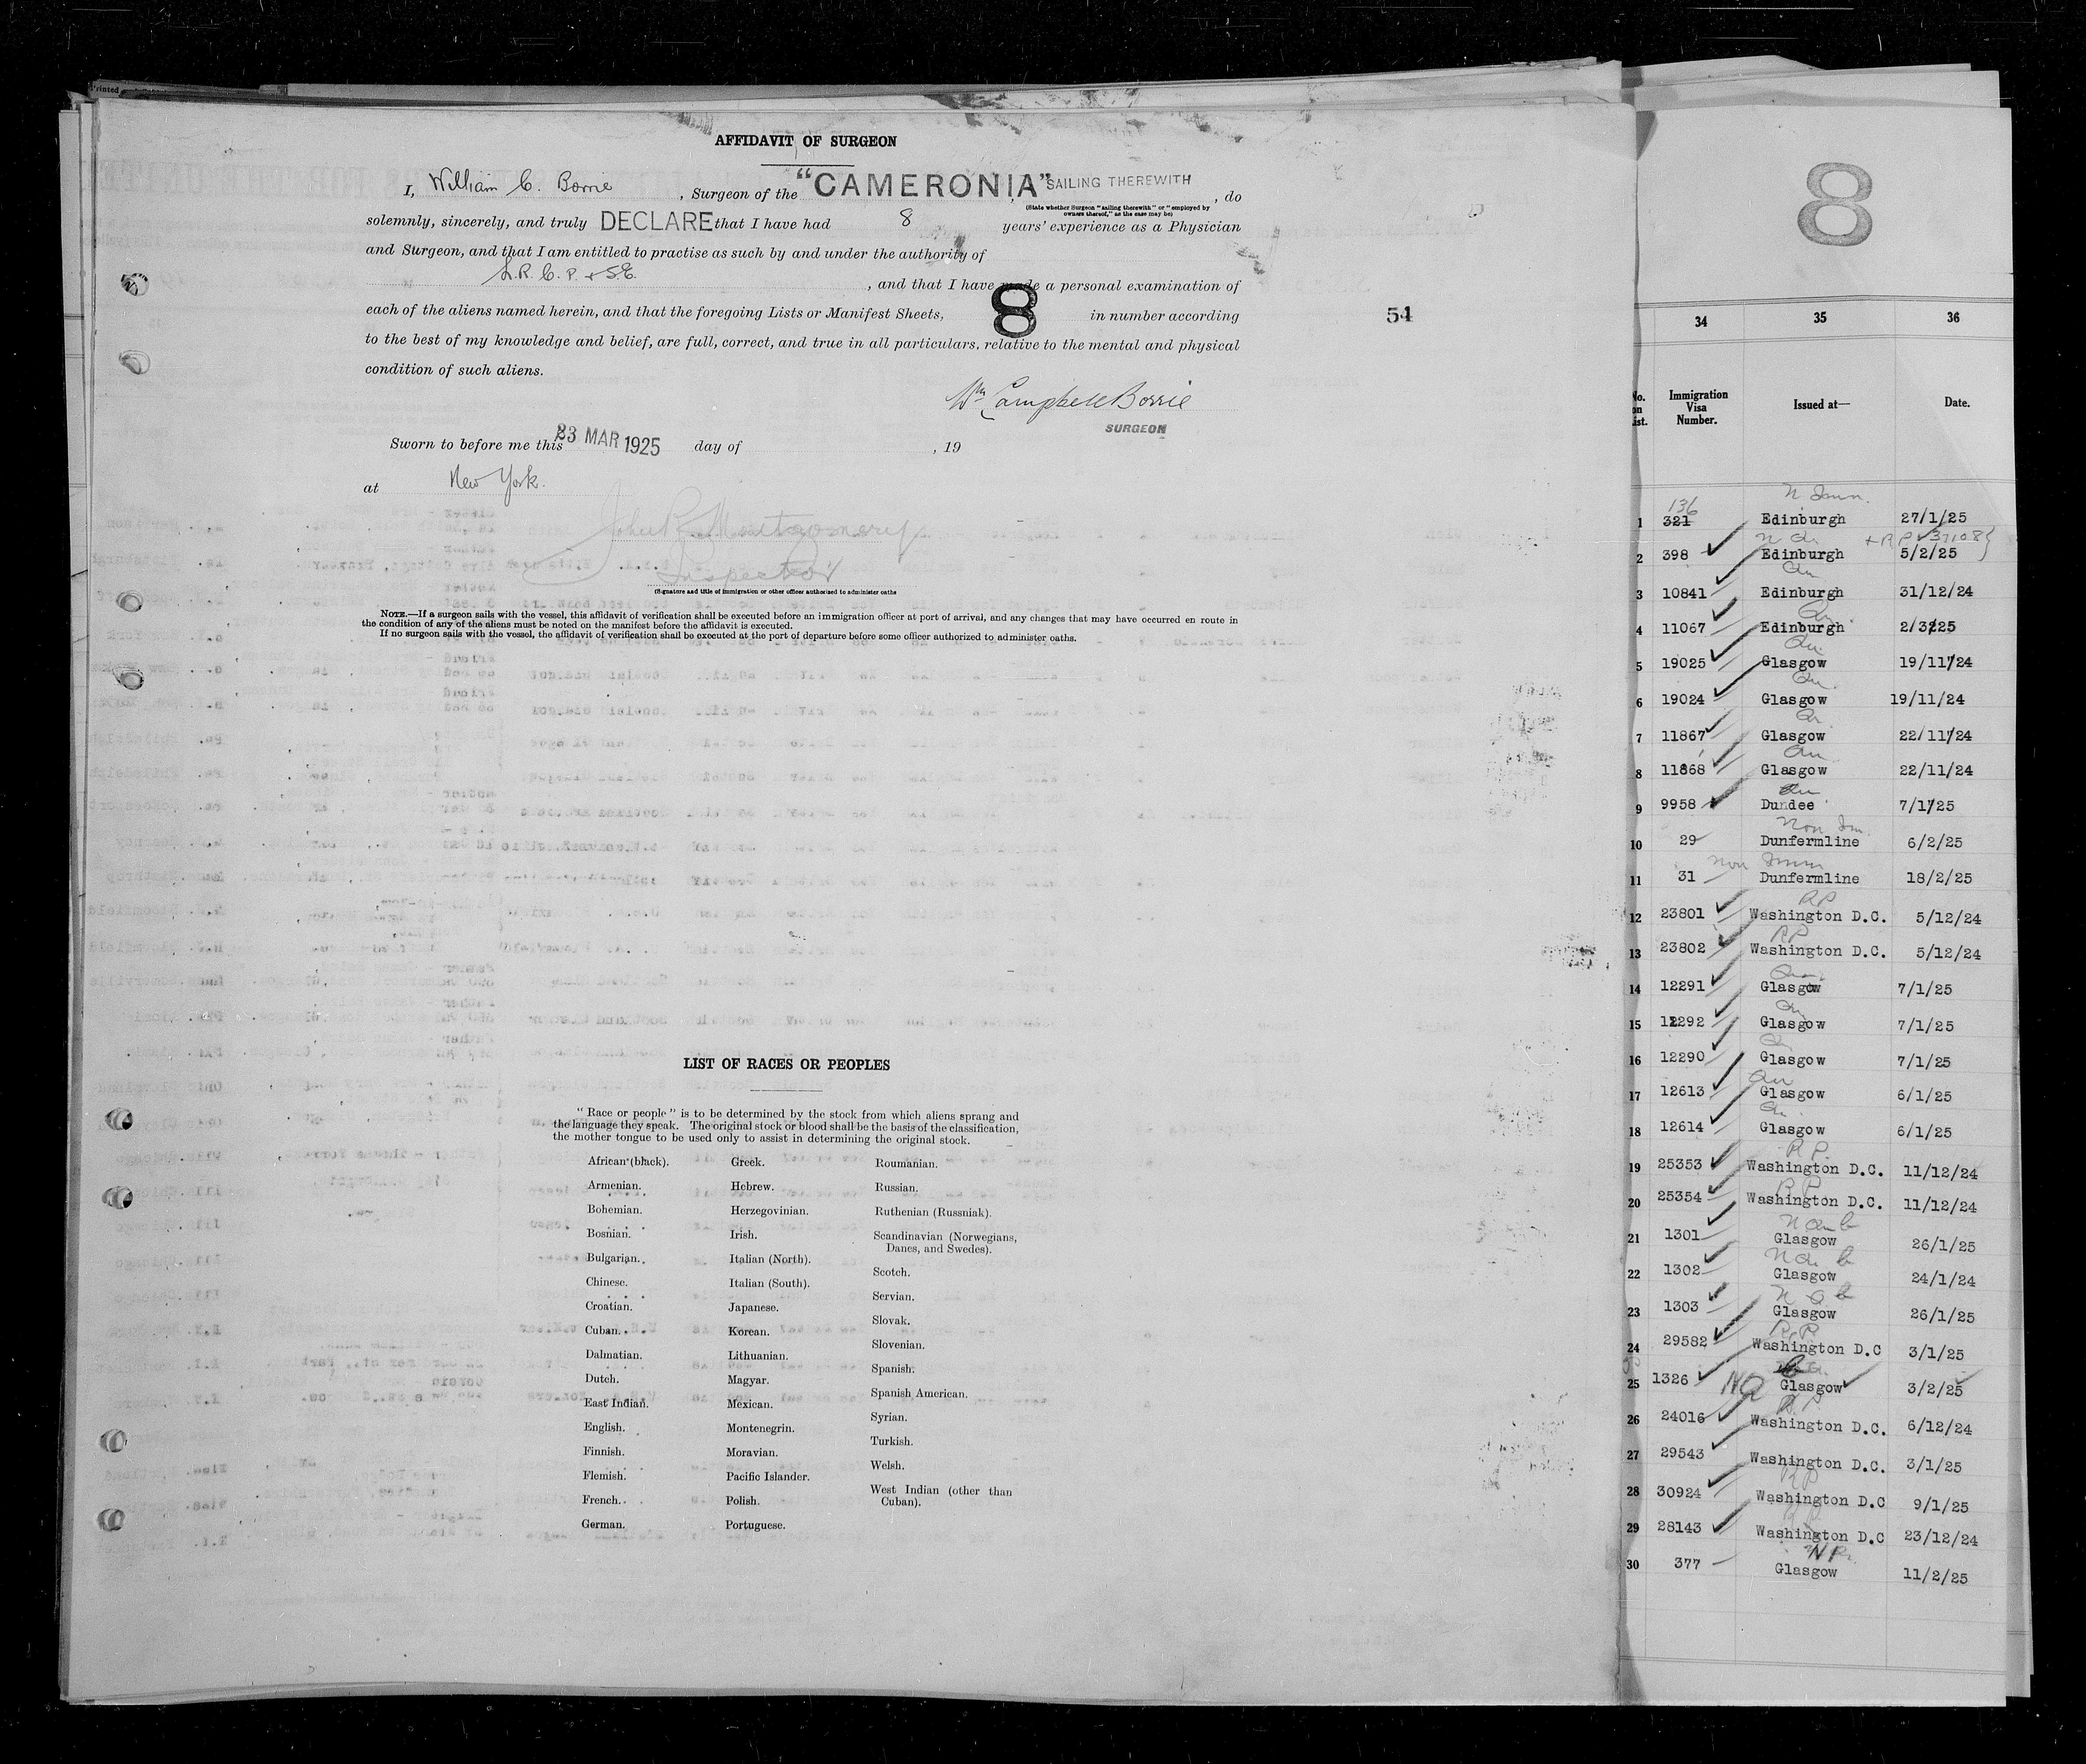 Printed
AFFIDAVIT OF SURGEON
I, William C. Borrie, Surgeon of the "CAMERONIA" SAILING THEREWITH, do
(State whether Surgeon "sailing therewith" or "employed by
owners thereof," as the case may be)
solemnly, sincerely, and truly DECLARE that I have had 8 years' experience as a Physician
and Surgeon, and that I am entitled to practise as such by and under the authority of
L.R.C.P. & S.E.
, and that I have made a personal examination of
8
each of the aliens named herein, and that the foregoing Lists or Manifest Sheets, in number according
to the best of my knowledge and belief, are full, correct, and true in all particulars, relative to the mental and physical
condition of such aliens.
Wm Campbell Borrie
SURGEON
Sworn to before me this 23 MAR 1925 day of , 19
at New York.
John R. Montgomery
Inspector
(Signature and title of immigration or other officer authorized to administer oaths
NOTE.—If a surgeon sails with the vessel, this affidavit of verification shall be executed before an immigration officer at port of arrival, and any changes that may have occurred en route in
the condition of any of the aliens must be noted on the manifest before the affidavit is executed.
If no surgeon sails with the vessel, the affidavit of verification shall be executed at the port of departure before some officer authorized to administer oaths.
54
LIST OF RACES OR PEOPLES
"Race or people" is to be determined by the stock from which aliens sprang and
the language they speak. The original stock or blood shall be the basis of the classification,
the mother tongue to be used only to assist in determining the original stock.
African (black).
Armenian.
Bohemian.
Bosnian.
Bulgarian.
Chinese.
Croatian.
Cuban.
Dalmatian.
Dutch.
East Indian.
English.
Finnish.
Flemish.
French.
German.
Greek.
Hebrew.
Herzegovinian.
Irish.
Italian (North).
Italian (South).
Japanese.
Korean.
Lithuanian.
Magyar.
Mexican.
Montenegrin.
Moravian.
Pacific Islander.
Polish.
Portuguese.
Roumanian.
Russian.
Ruthenian (Russniak).
Scandinavian (Norwegians,
Danes, and Swedes).
Scotch.
Servian.
Slovak.
Slovenian.
Spanish.
Spanish American.
Syrian.
Turkish.
Welsh.
West Indian (other than
Cuban).
8
34 35 36
No. on List. Immigration Visa Number. Issued at— Date.
136 N Imm.
1 321 Edinburgh 27/1/25
+ R P 37108
2 398 Edinburgh 5/2/25
3 10841 Edinburgh 31/12/24
4 11067 Edinburgh 2/3/25
5 19025 Glasgow 19/11/24
6 19024 Glasgow 19/11/24
7 11867 Glasgow 22/11/24
8 11868 Glasgow 22/11/24
9 9958 Dundee 7/1/25
Non Im.
10 29 Dunfermline 6/2/25
Non Imm
11 31 Dunfermline 18/2/25
RP
12 23801 Washington D.C. 5/12/24
RP
13 23802 Washington D.C. 5/12/24
14 12291 Glasgow 7/1/25
15 12292 Glasgow 7/1/25
16 12290 Glasgow 7/1/25
17 12613 Glasgow 6/1/25
18 12614 Glasgow 6/1/25
R P.
19 25353 Washington D.C. 11/12/24
R P
20 25354 Washington D.C. 11/12/24
21 1301 Glasgow 26/1/25
22 1302 Glasgow 24/1/24
23 1303 Glasgow 26/1/25
R.P.
24 29582 Washington D.C 3/1/25
25 1326 NQ Glasgow 3/2/25
R.P.
26 24016 Washington D.C. 6/12/24
27 29543 Washington D.C. 3/1/25
RP
28 30924 Washington D.C 9/1/25
29 28143 Washington D.C 23/12/24
30 377 Glasgow 11/2/25